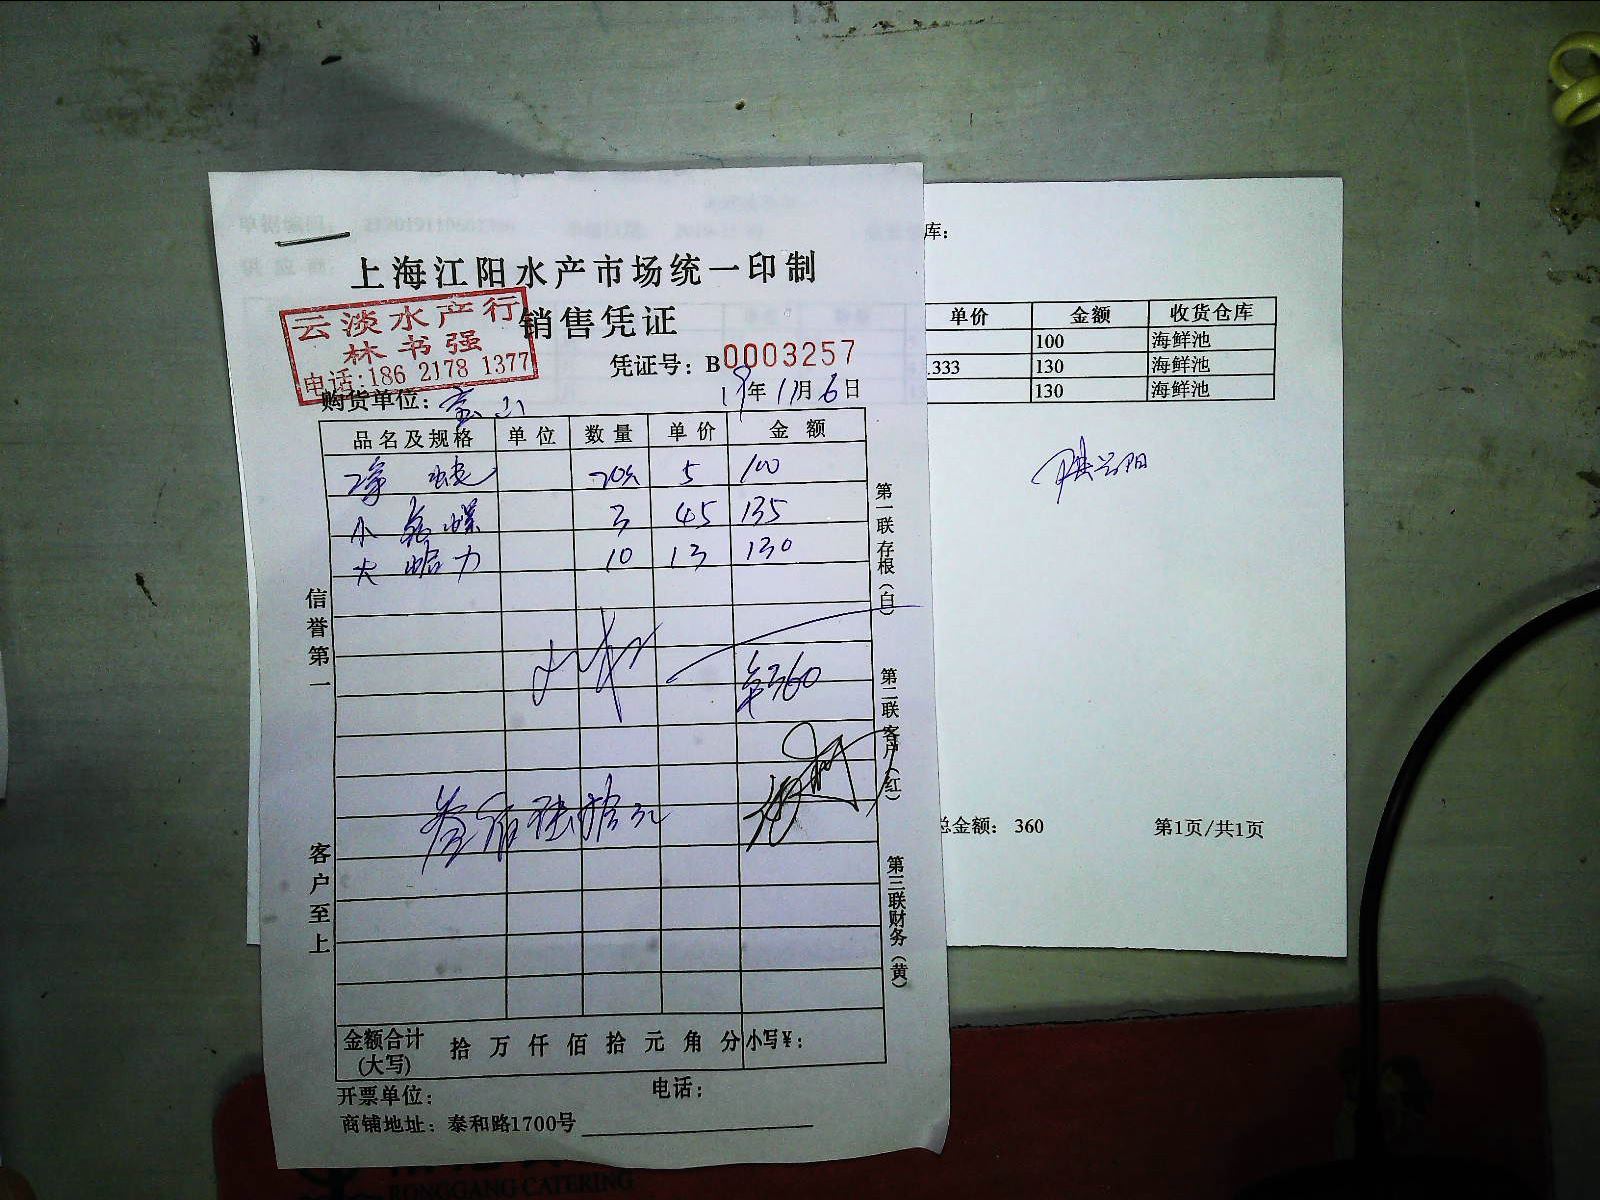 上海江阳水产市场统一印制
销售凭证
云淡水产行
林书强
电话:186 2178 1377
凭证号：B0003257
购货单位：宝山
19年11月6日
品名及规格 单位 数量 单价 金额
5 100
小 螺 3 45 135
大 蛤力 10 13 130
360
叁佰陆拾元
金额合计(大写) 拾 万 仟 佰 拾 元 角 分 小写¥：
开票单位： 电话：
商铺地址：泰和路1700号
信誉第一
客户至上
第一联存根（白）
第二联客户（红）
第三联财务（黄）
库：
单价 金额 收货仓库
100 海鲜池
.333 130 海鲜池
130 海鲜池
总金额： 360 第1页/共1页
RONGGANG CATERING